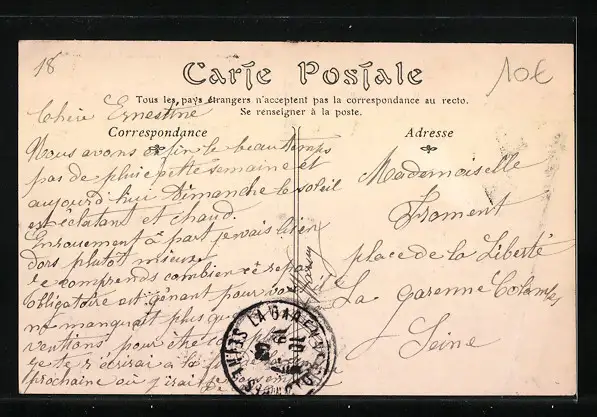 18
10€
Carte Postale
Tous les pays étrangers n'acceptent pas la correspondance au recto.
Se renseigner à la poste.
Correspondance
Chère Ernestine
Nous avons enfin le beau temps
pas de pluie cette semaine et
aujourd'hui Dimanche le soleil
est éclatant et chaud.
Enrouement à part je vais bien
dors plutôt mieux.
Je comprends combien ce repos
obligatoire est gênant pour
ne manquait plus que
ventions pour être
je te récrirai à la
prochaine où j'irai
Adresse
Mademoiselle
Froment
place de la Liberté
La Garenne Colombes
Seine
LA GARENNE-COLOMBES
SEINE